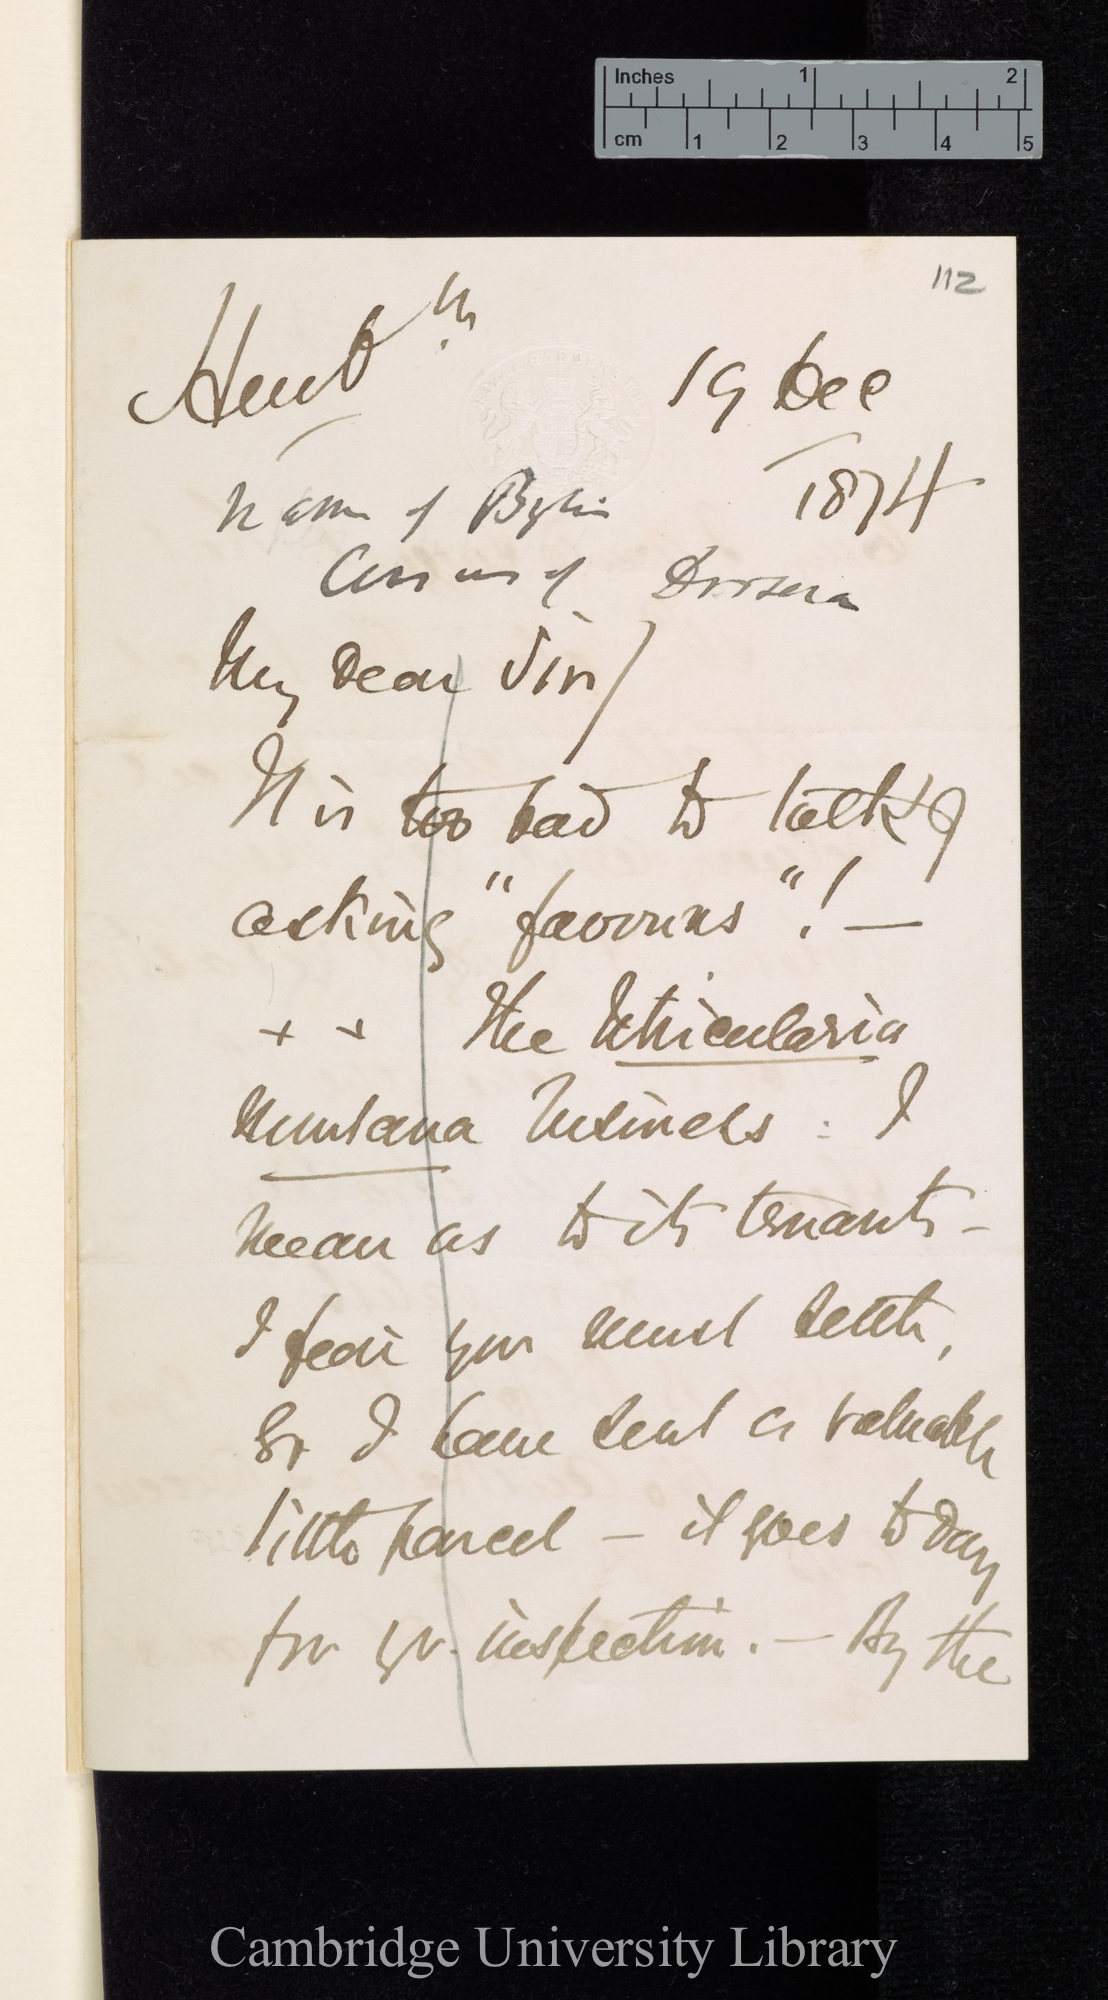 Inches 1 2
cm 1 2 3 4 5
112
Herbm.
19 Dec
1874
Name of Byblis
Cases of Drosera
My Dear Sir/
It is too bad to talk of
asking "favours"! —
+ + The Utricularia
montana business: I
mean as to its tenants —
I fear you must settle,
So I have sent a valuable
little parcel — it goes to day
for yr. inspection. — By the
Cambridge University Library